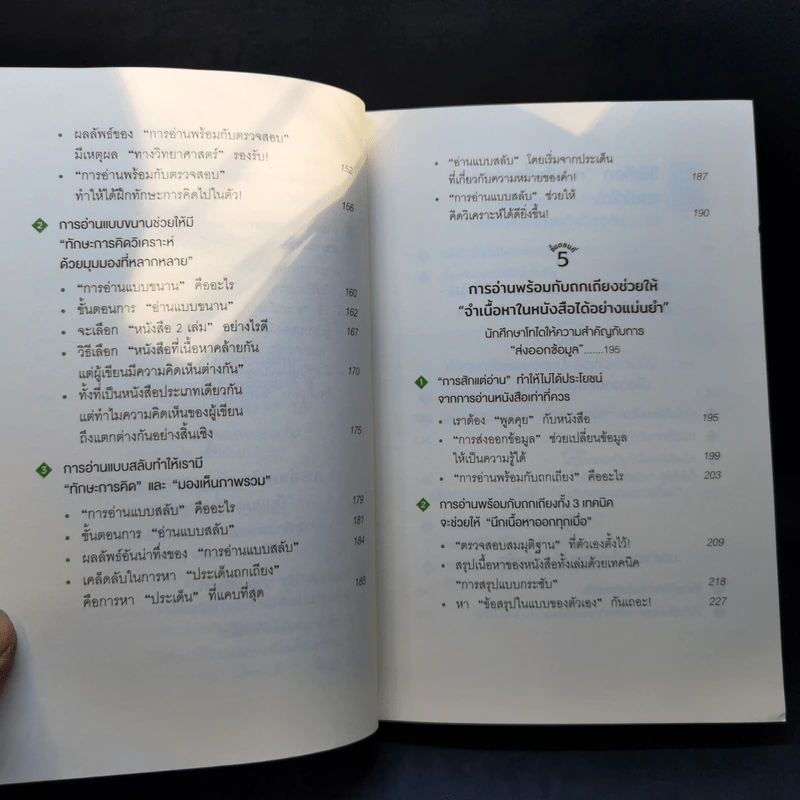 • ผลลัพธ์ของ “การอ่านพร้อมกับตรวจสอบ”
มีเหตุผล “ทางวิทยาศาสตร์” รองรับ! 152
• “การอ่านพร้อมกับตรวจสอบ”
ทำให้ได้ฝึกทักษะการคิดไปในตัว! 156
2 การอ่านแบบขนานช่วยให้มี
“ทักษะการคิดวิเคราะห์
ด้วยมุมมองที่หลากหลาย”
• “การอ่านแบบขนาน” คืออะไร 160
• ขั้นตอนการ “อ่านแบบขนาน” 162
• จะเลือก “หนังสือ 2 เล่ม” อย่างไรดี 167
• วิธีเลือก “หนังสือที่เนื้อหาคล้ายกัน
แต่ผู้เขียนมีความคิดเห็นต่างกัน” 170
• ทั้งที่เป็นหนังสือประเภทเดียวกัน
แต่ทำไมความคิดเห็นของผู้เขียน
ถึงแตกต่างกันอย่างสิ้นเชิง 175
3 การอ่านแบบสลับทำให้เรามี
“ทักษะการคิด” และ “มองเห็นภาพรวม”
• “การอ่านแบบสลับ” คืออะไร 179
• ขั้นตอนการ “อ่านแบบสลับ” 181
• ผลลัพธ์อันน่าทึ่งของ “การอ่านแบบสลับ” 184
• เคล็ดลับในการหา “ประเด็นถกเถียง”
คือการหา “ประเด็น” ที่แคบที่สุด 185
• “อ่านแบบสลับ” โดยเริ่มจากประเด็น
ที่เกี่ยวกับความหมายของคำ! 187
• “การอ่านแบบสลับ” ช่วยให้
คิดวิเคราะห์ได้ดียิ่งขึ้น! 190
ขั้นตอนที่
5
การอ่านพร้อมกับถกเถียงช่วยให้
“จำเนื้อหาในหนังสือได้อย่างแม่นยำ”
นักศึกษาโทไดให้ความสำคัญกับการ
“ส่งออกข้อมูล”.......195
1 “การสักแต่อ่าน” ทำให้ไม่ได้ประโยชน์
จากการอ่านหนังสือเท่าที่ควร
• เราต้อง “พูดคุย” กับหนังสือ 195
• “การส่งออกข้อมูล” ช่วยเปลี่ยนข้อมูล
ให้เป็นความรู้ได้ 199
• “การอ่านพร้อมกับถกเถียง” คืออะไร 203
2 การอ่านพร้อมกับถกเถียงทั้ง 3 เทคนิค
จะช่วยให้ “นึกเนื้อหาออกทุกเมื่อ”
• “ตรวจสอบสมมุติฐาน” ที่ตัวเองตั้งไว้! 209
• สรุปเนื้อหาของหนังสือทั้งเล่มด้วยเทคนิค
“การสรุปแบบกระชับ” 218
• หา “ข้อสรุปในแบบของตัวเอง” กันเถอะ! 227